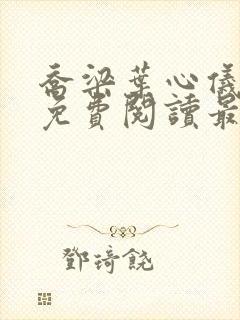 喬梁葉心儀
免費閱讀最
鄧琦饒